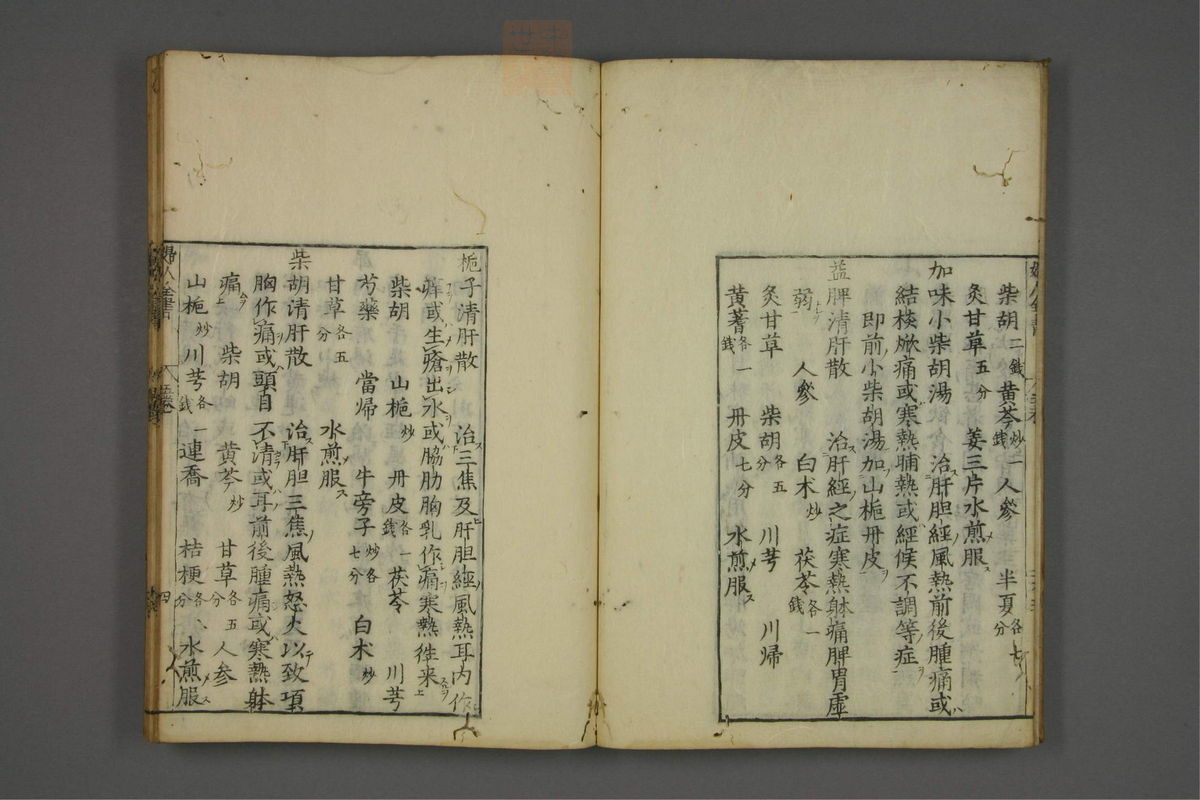 柴胡二錢 黃芩炒一錢 人參 半夏各七分
炙甘草五分 姜三片水煎服
加味小柴胡湯 治肝胆經風熱前後腫痛或
結核焮痛或寒熱晡熱或經候不調等症
即前小柴胡湯加山梔丹皮
益脾清肝散 治肝經之症寒熱躰痛脾胃虛
弱 人參 白术炒 茯苓各一錢
炙甘草 柴胡各五分 川芎 川帰
黃蓍各一錢 丹皮七分 水煎服
梔子清肝散 治三焦及肝胆經風熱耳内作
痒或生瘡出水或脇肋胸乳作痛寒熱徃来
柴胡 山梔炒 丹皮各一錢 茯苓 川芎
芍藥 當帰 牛旁子炒各七分 白术炒
甘草各五分 水煎服
柴胡清肝散 治肝胆三焦風熱怒火以致項
胸作痛或頭目不清或耳前後腫痛或寒熱躰
痛 柴胡 黃芩炒 甘草各五分 人參
山梔炒 川芎各一錢 連喬 桔梗 水煎服
婦人全書
四